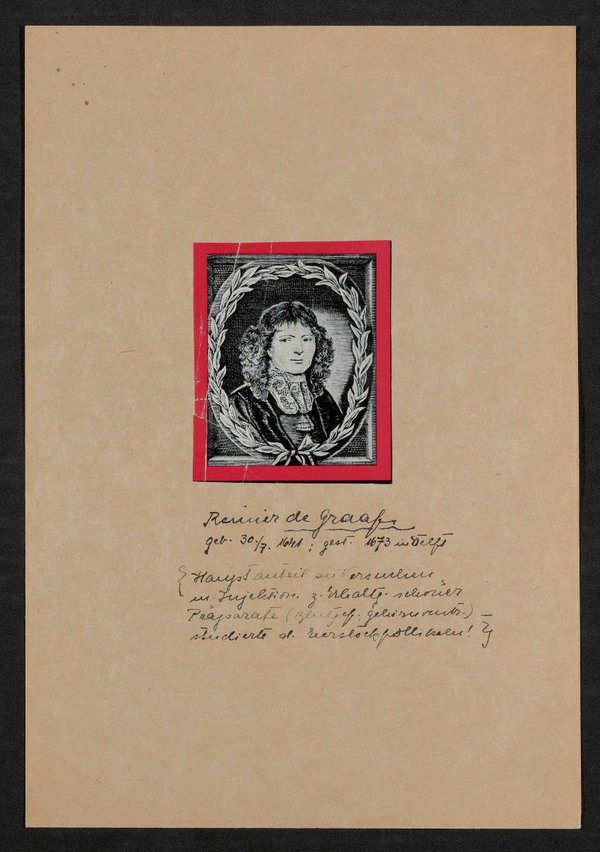 Reinier de Graaf
geb. 30./7. 1641; gest. 1673 in Delft
{ Hauptanteil an Versuchen
m. Injektion z. Erhaltg. schöner
Präparate (
studierte d. Eierstockfollikeln! }